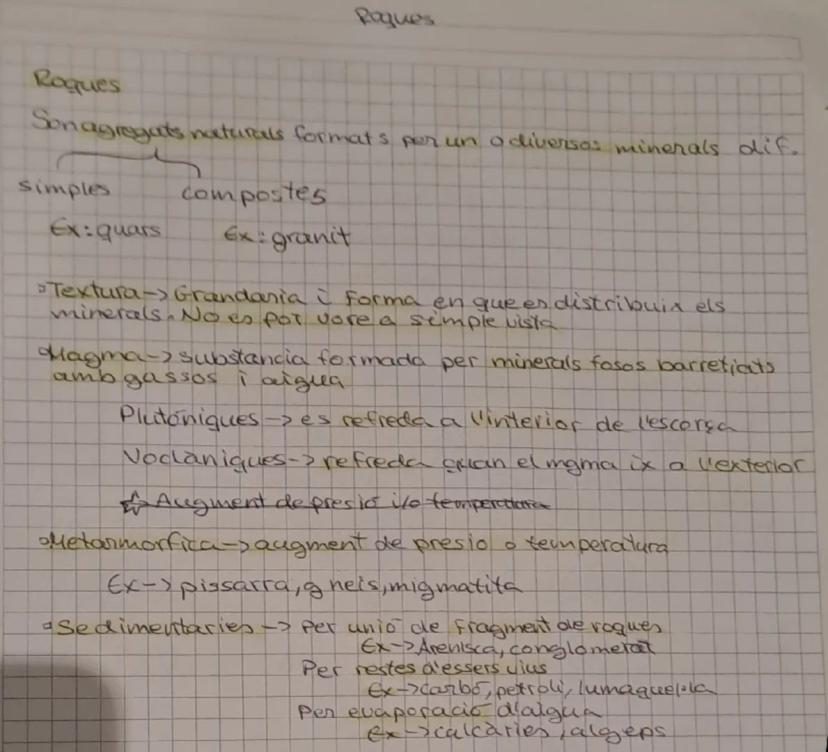 Roques
Roques
Son agregats naturals formats per un o diversos minerals dif.
simples compostes
Ex: quars Ex: granit
Textura -> Grandaria i forma en que es distribuix els
minerals. No es pot vore a simple vista
Magma -> substancia formada per minerals fosos barretjats
amb gassos i aigua
Plutóniques -> es refreda a l'interior de l'escorça
Voclaniques -> refreda quan el mgma ix a l'exterior
Augment de presió i/o temperatura
Metasmorfica -> augment de presio o temperatura
Ex -> pissarra, gneis, migmatita
Sedimentaries -> Per unió de fragment de roques
Ex -> Arenisca, conglomerat
Per restes d'essers vius
Ex -> carbó, petroli, lumaquel·la
Per evaporació d'aigua
Ex -> calcàries, algeps